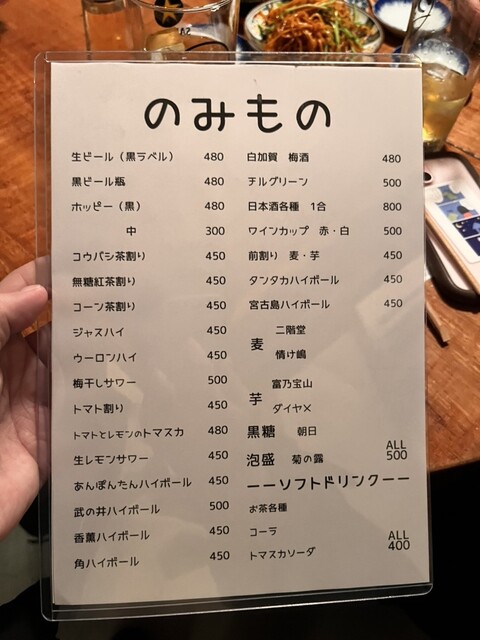 のみもの
生ビール（黒ラベル） 480
黒ビール瓶 480
ホッピー（黒） 480
中 300
コウバシ茶割り 450
無糖紅茶割り 450
コーン茶割り 450
ジャスハイ 450
ウーロンハイ 450
梅干しサワー 500
トマト割り 450
トマトとレモンのトマスカ 480
生レモンサワー 450
あんぽんたんハイボール 450
武の井ハイボール 500
香薫ハイボール 450
角ハイボール 450
白加賀 梅酒 480
チルグリーン 500
日本酒各種 1合 800
ワインカップ 赤・白 500
前割り 麦・芋 450
タンタカハイボール 450
宮古島ハイボール 450
麦 二階堂
情け嶋
芋 富乃宝山
ダイヤ×
黒糖 朝日
泡盛 菊の露 ALL 500
ーーソフトドリンクーー
お茶各種
コーラ
トマスカソーダ ALL 400